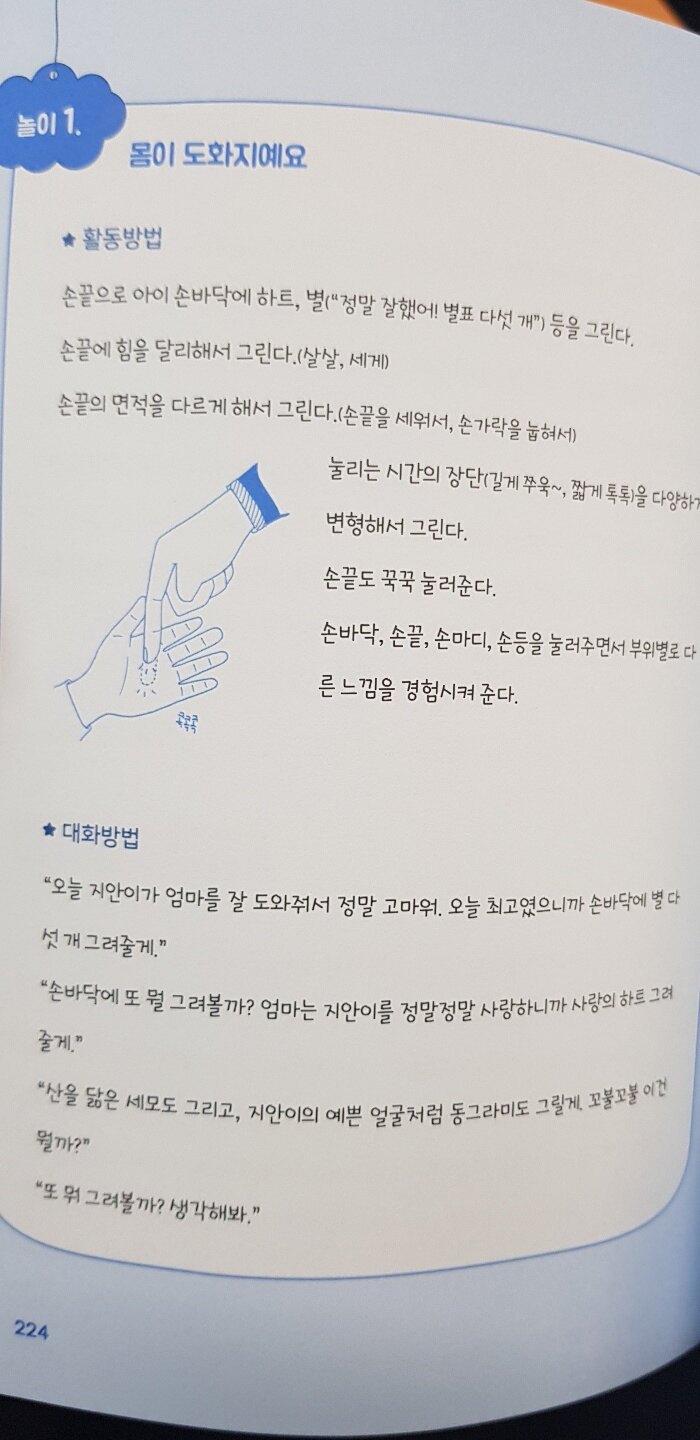 놀이 1.
몸이 도화지예요
★ 활동방법
손끝으로 아이 손바닥에 하트, 별(“정말 잘했어! 별표 다섯 개”) 등을 그린다.
손끝에 힘을 달리해서 그린다.(살살, 세게)
손끝의 면적을 다르게 해서 그린다.(손끝을 세워서, 손가락을 눕혀서)
눌리는 시간의 장단(길게 쭈욱~, 짧게 톡톡)을 다양하게
변형해서 그린다.
손끝도 꾹꾹 눌러준다.
손바닥, 손끝, 손마디, 손등을 눌러주면서 부위별로 다
른 느낌을 경험시켜 준다.
콕콕콕
★ 대화방법
“오늘 지안이가 엄마를 잘 도와줘서 정말 고마워. 오늘 최고였으니까 손바닥에 별 다
섯 개 그려줄게.”
“손바닥에 또 뭘 그려볼까? 엄마는 지안이를 정말정말 사랑하니까 사랑의 하트 그려
줄게.”
“산을 닮은 세모도 그리고, 지안이의 예쁜 얼굴처럼 동그라미도 그릴게. 꼬불꼬불 이건
뭘까?”
“또 뭐 그려볼까? 생각해봐.”
224